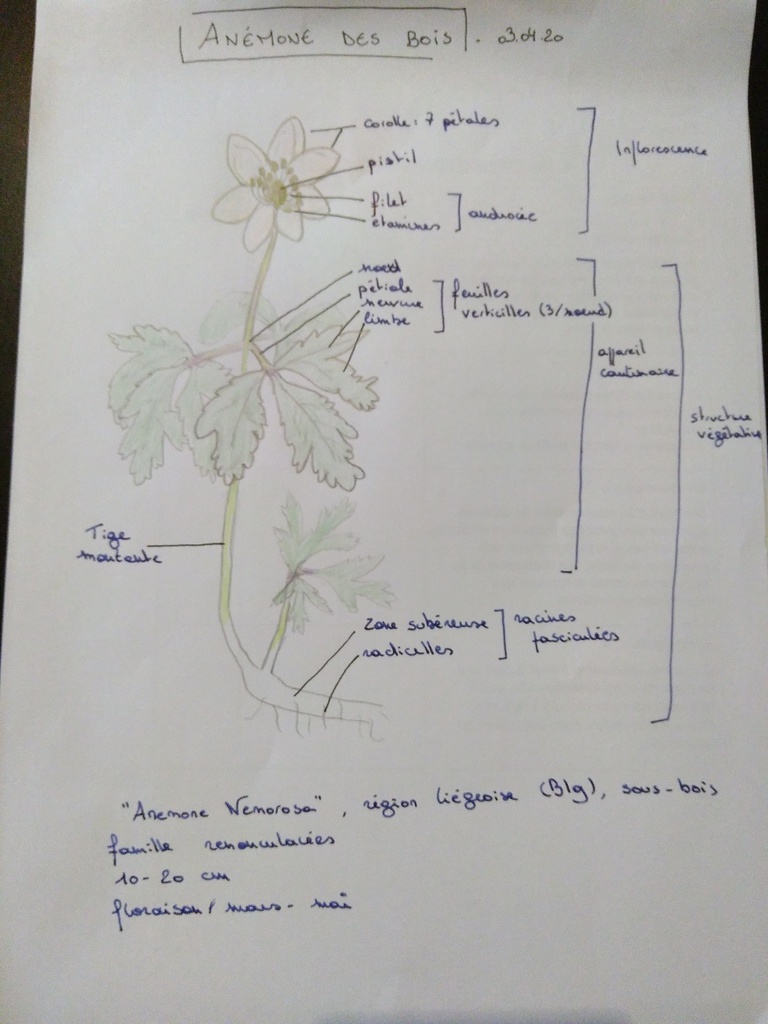 ANÉMONE DES BOIS. 03.04.20
corolle: 7 pétales
pistil
filet
étamines
androcée
Inflorescence
noeud
pétiole
nervure
limbe
feuilles
verticilles (3/noeud)
appareil
caulinaire
structure
végétative
Tige
montante
Zone subéreuse
radicelles
racines
fasciculées
"Anemone Nemorosa", région liégeoise (Blg), sous-bois
famille renonculacées
10-20 cm
floraison / mars - mai